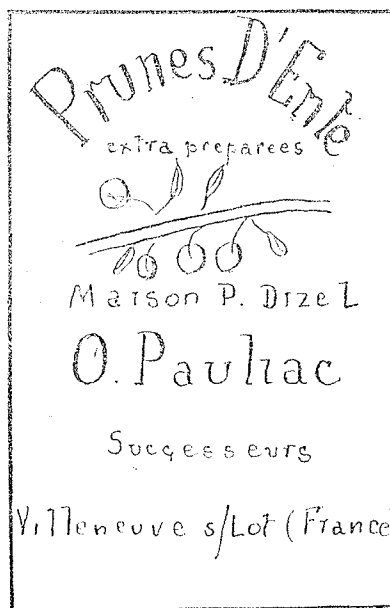 Prunes D'Ente
extra preparees
Maison P. Dizel
O. Pauliac
Successeurs
Villeneuve s/Lot (France